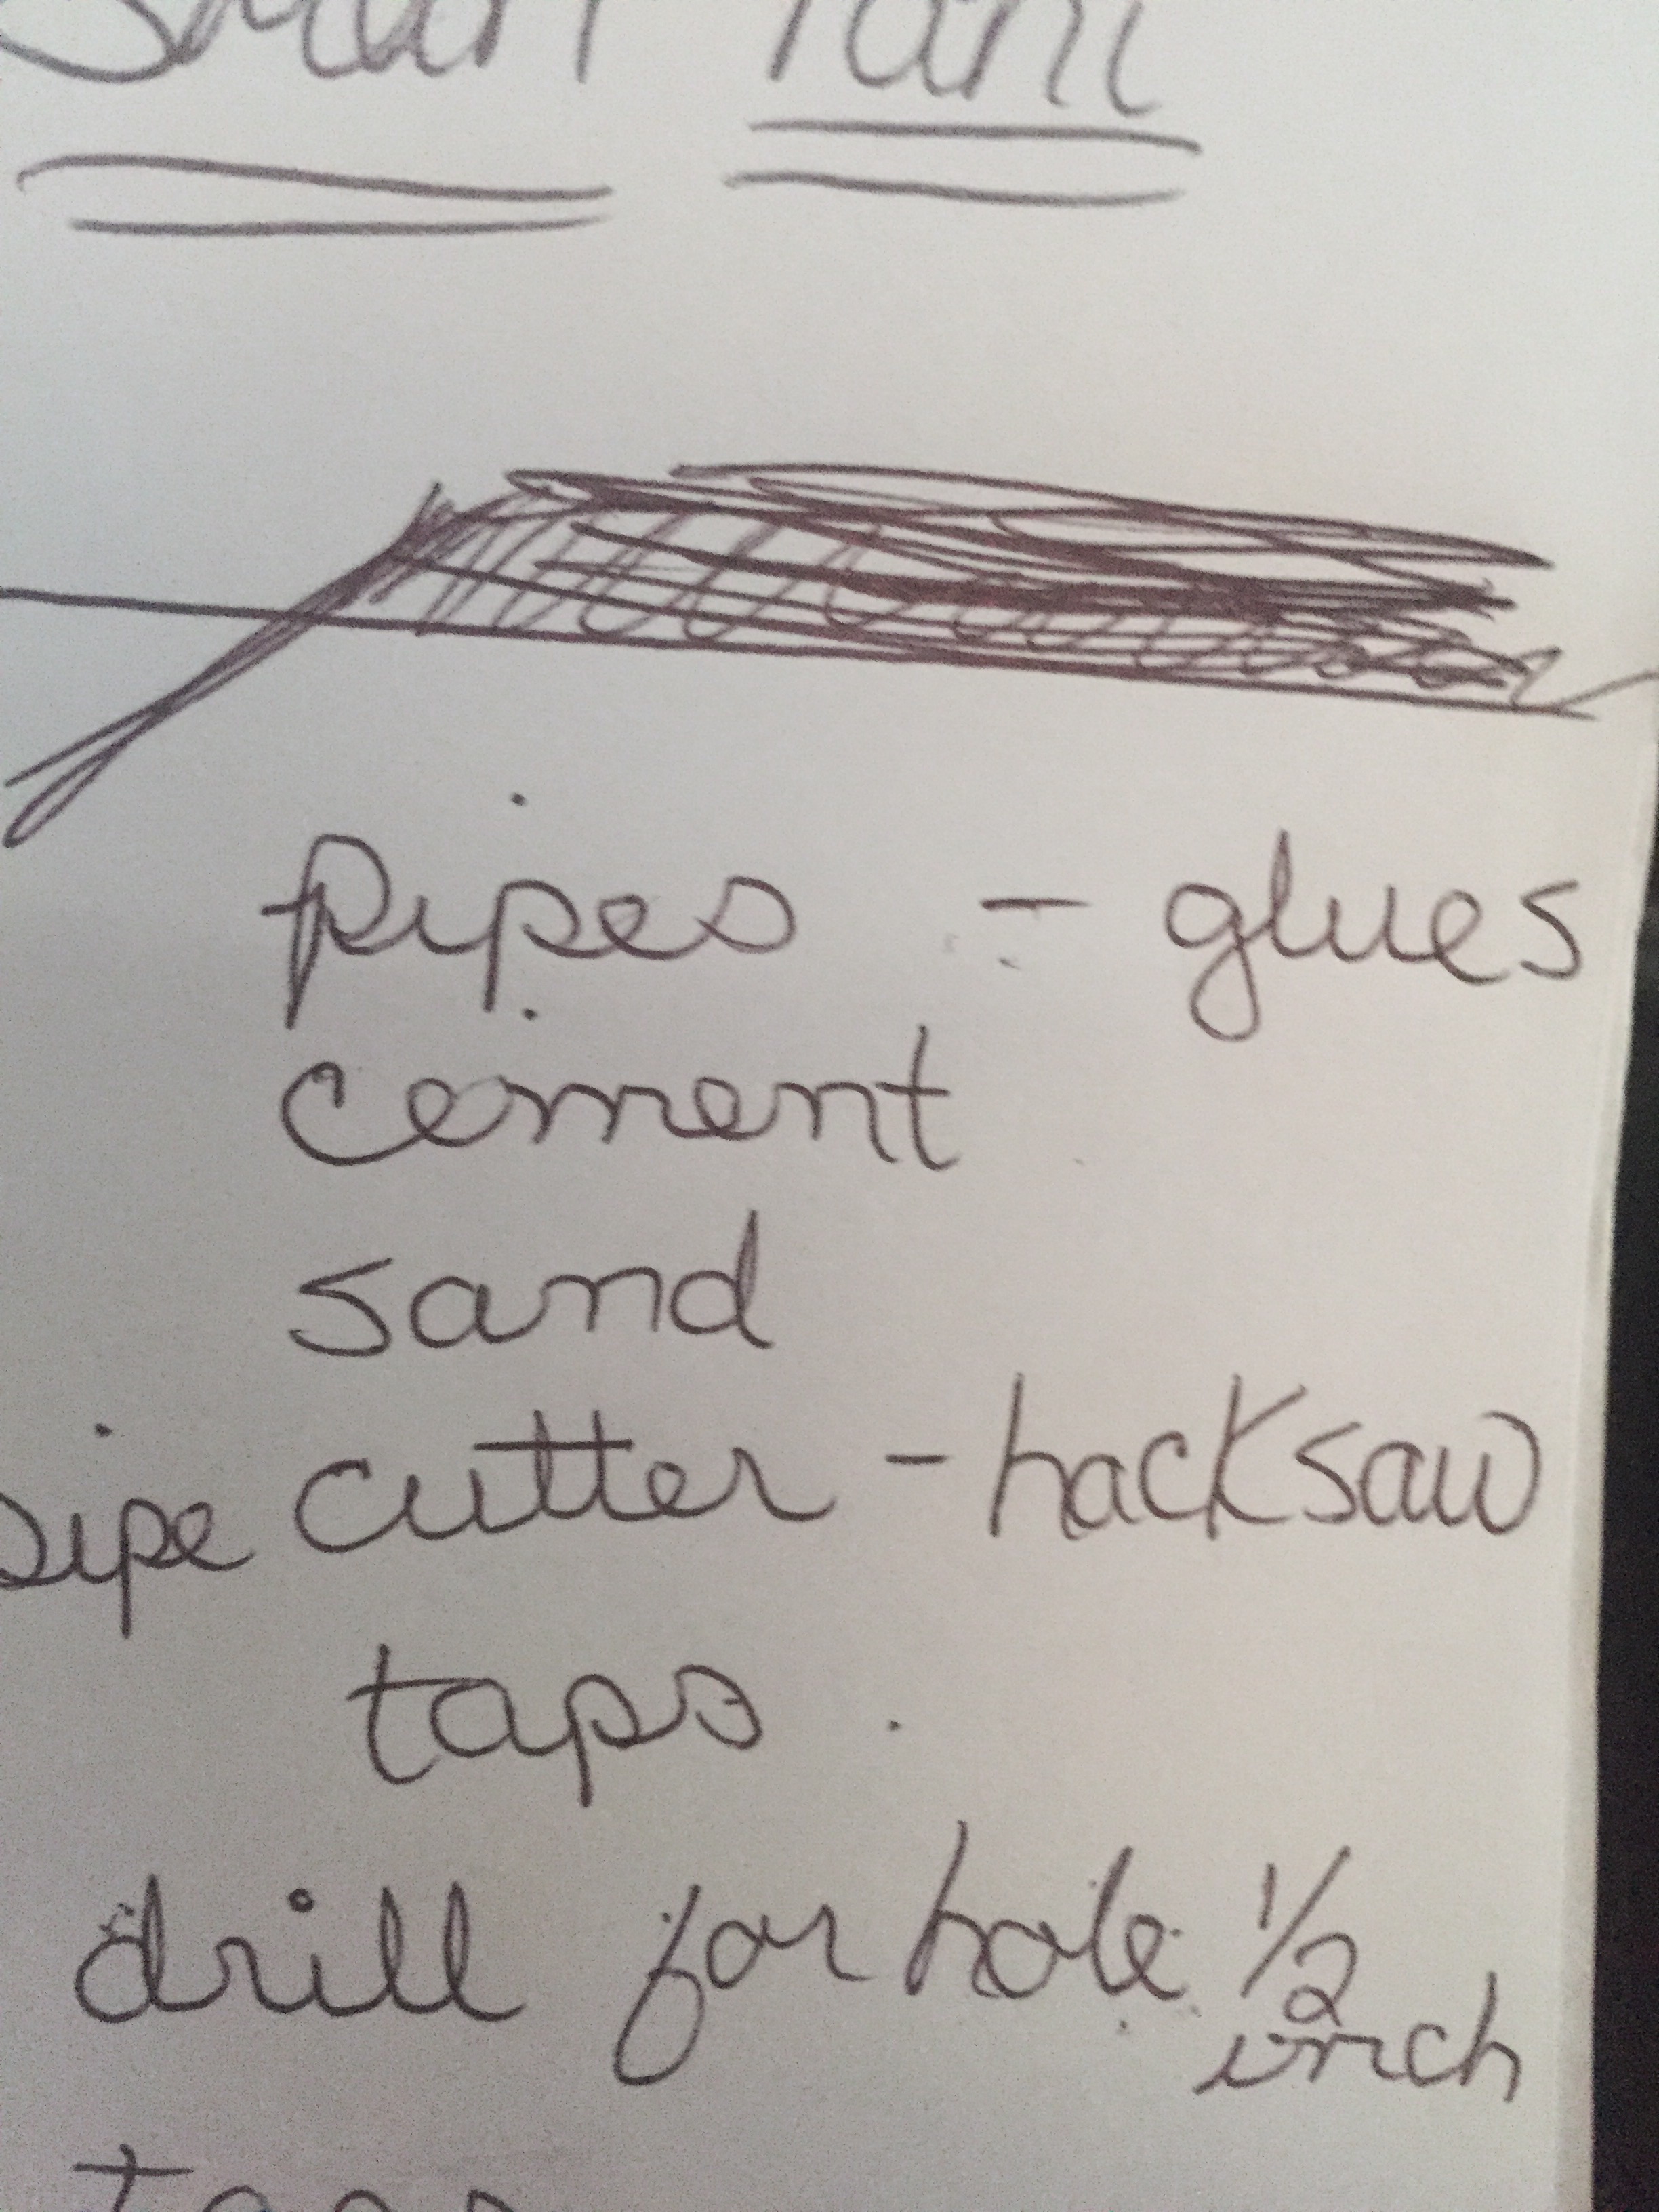 Smart
pipes - glues
cement
sand
pipe cutter - hacksaw
taps
drill for hole 1/2
inch